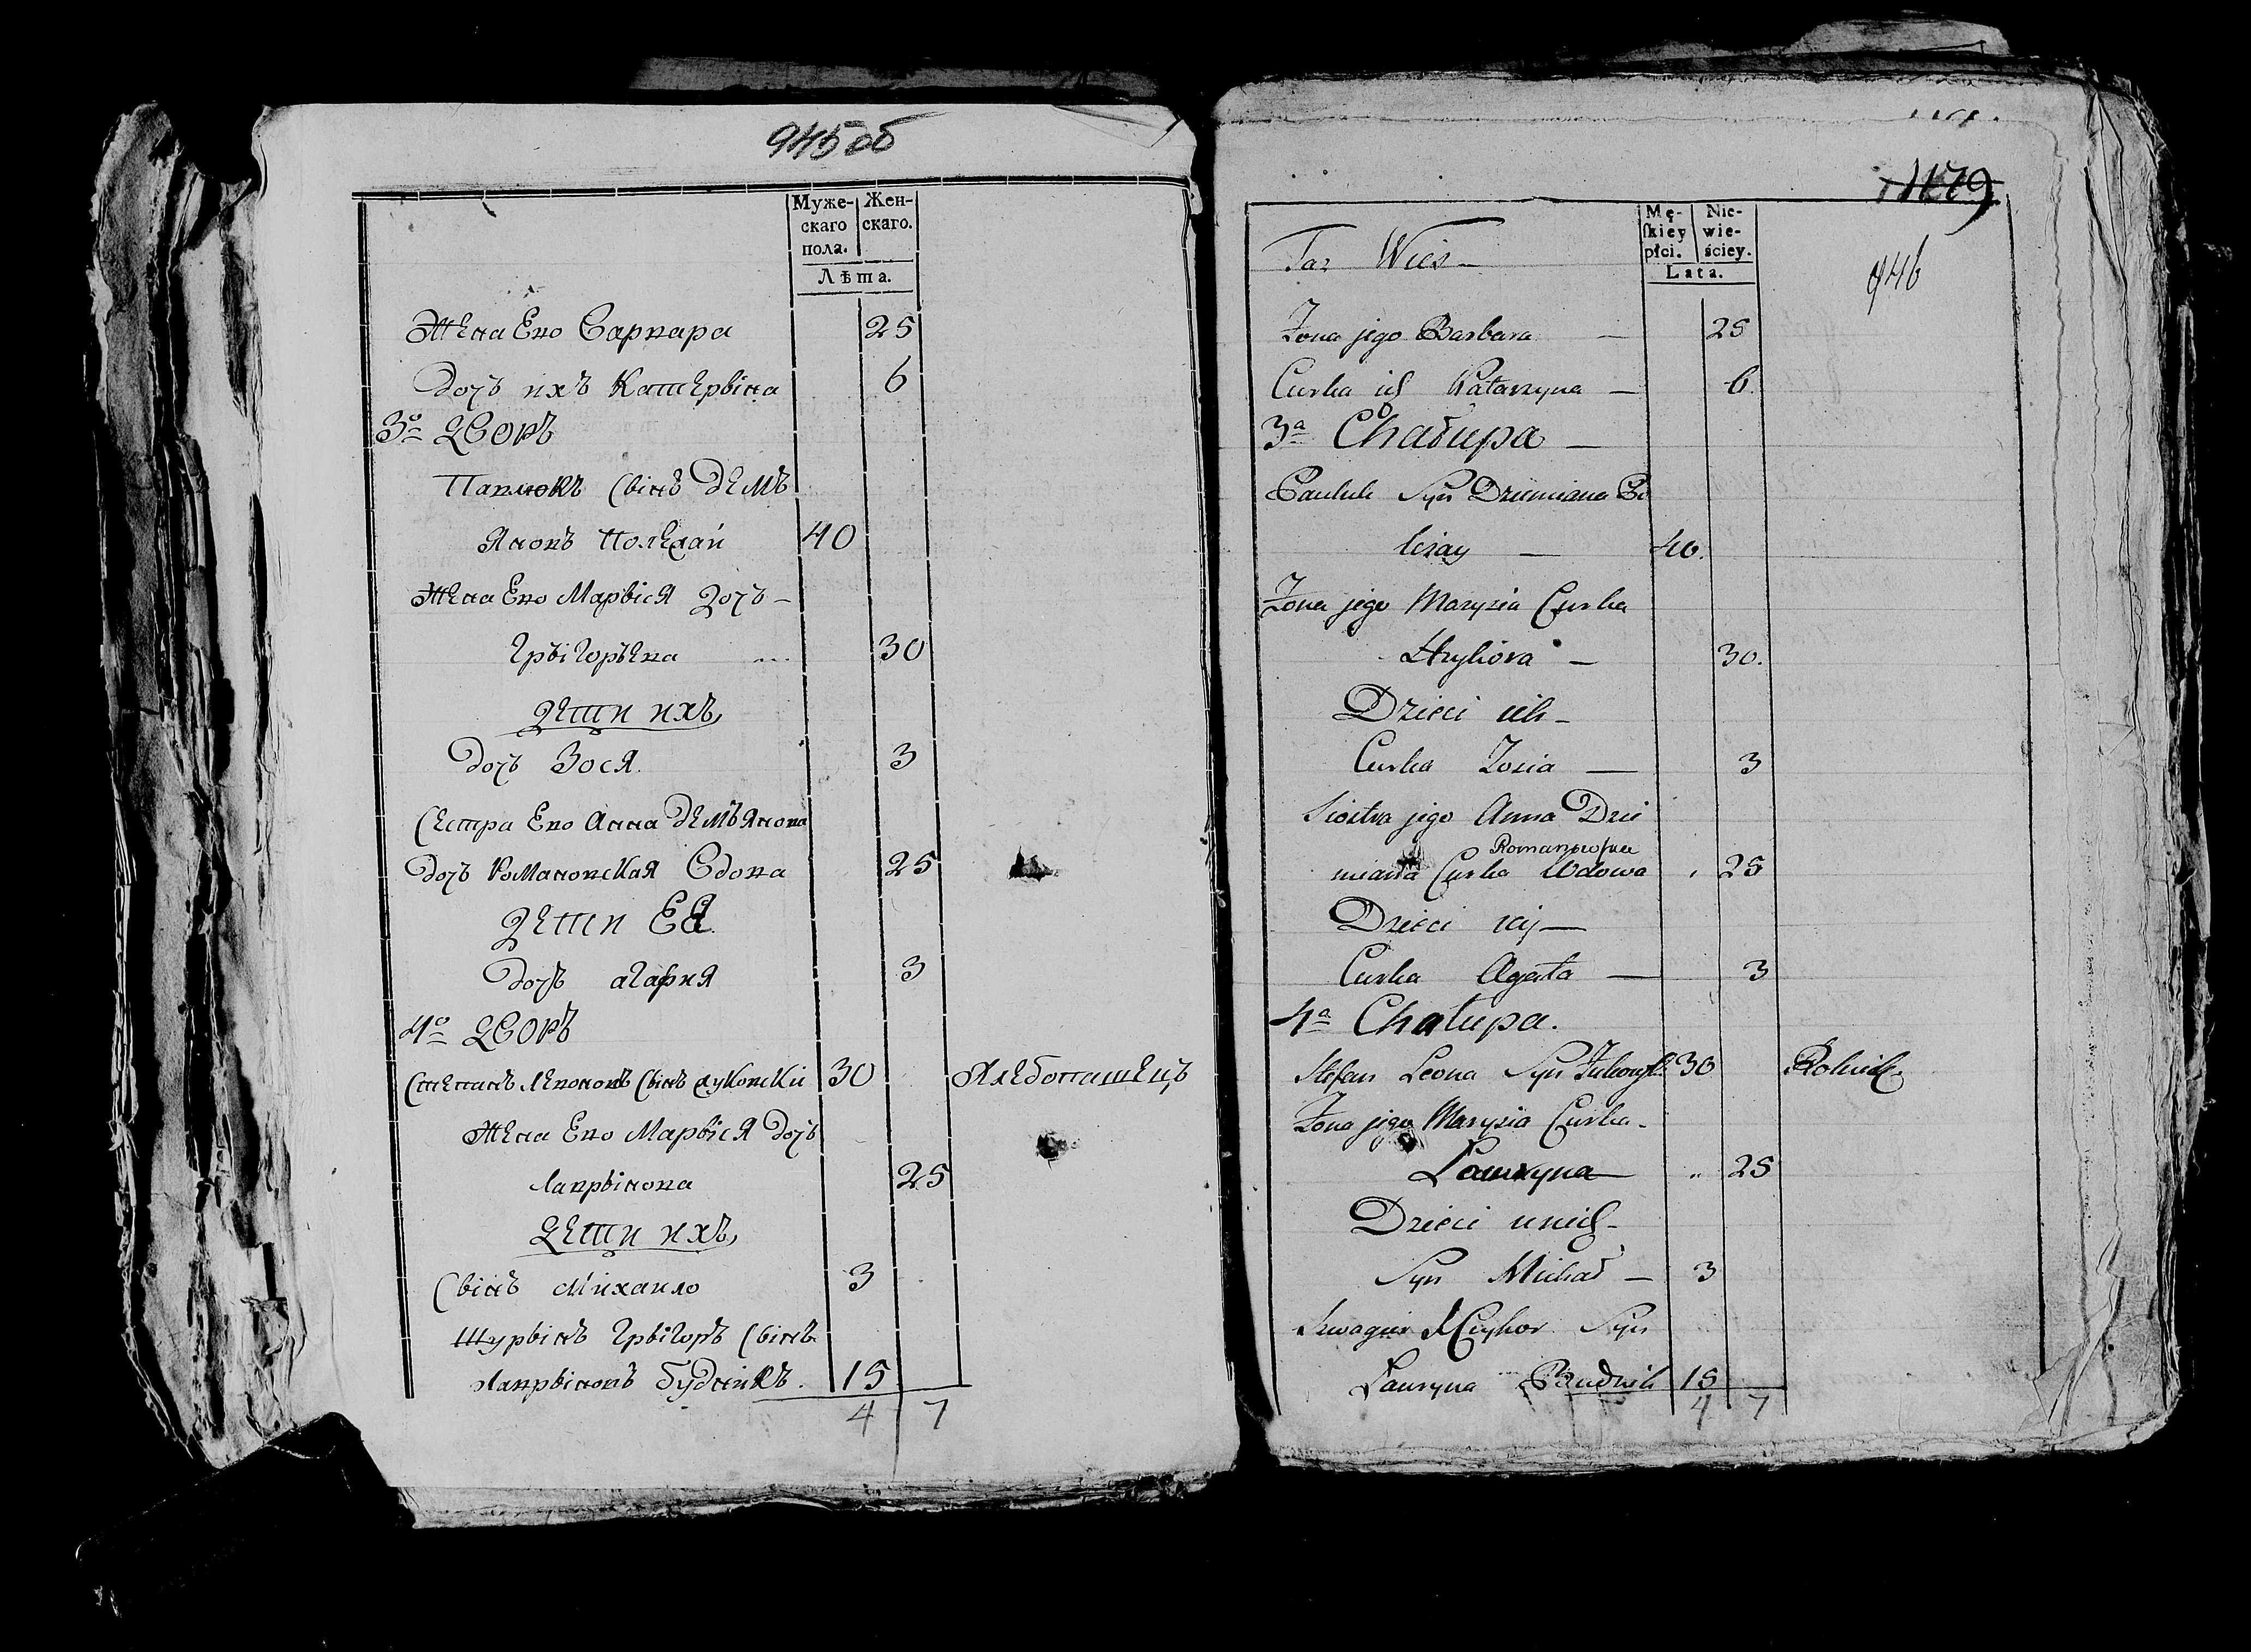 945 об
Муже-
скаго
пола.
Жен-
скаго.
Лѣта.
Жена Ево Варвара 25
Дочь ихъ Катервіна 6
3º Дворъ
Павлюкъ Сынъ Демъ
Яновъ Полежай 40
Жена Ево Марыся Дочь –
Грыгорьева 30
Дети ихъ
Дочь Зося 3
Сестра Ево Анна Демъянова
Дочь Романовская Вдова 25
Дети Ея
Дочь Агафия 3
4º Дворъ
Степанъ Левоновъ Сынъ Жуковски 30 Хлебопашецъ
Жена Ево Марыся Дочь
Лаврынова 25
Дети ихъ
Сынъ Михаило 3
Шурынъ Грыгоръ Сынъ
Лаврыновъ Будникъ. 15
4 7
1179
946
Taż Wieś –
Mę-
skiey
płci.
Nie-
wie-
ściey.
Lata.
Żona jego Barbara – 25
Curka ich Katarzyna – 6.
3ª Chałupa –
Pauluk Syn Dziemiana Po
leżay – 40.
Żona jego Marysia Curka
Hryhora – 30.
Dzieci ich –
Curka Zosia – 3
Siostra jego Anna Dzie
Romanowska
miana Curka Wdowa 25
Dzieci iey –
Curka Agata – 3
4ª Chałupa.
Stefan Leona Syn Żukowski 30 Rolnik
Żona jego Marysia Curka –
Lauryna 25
Dzieci unich –
Syn Michał – 3
Szwagier Hryhor Syn
Lauryna Budnik 15
4 7